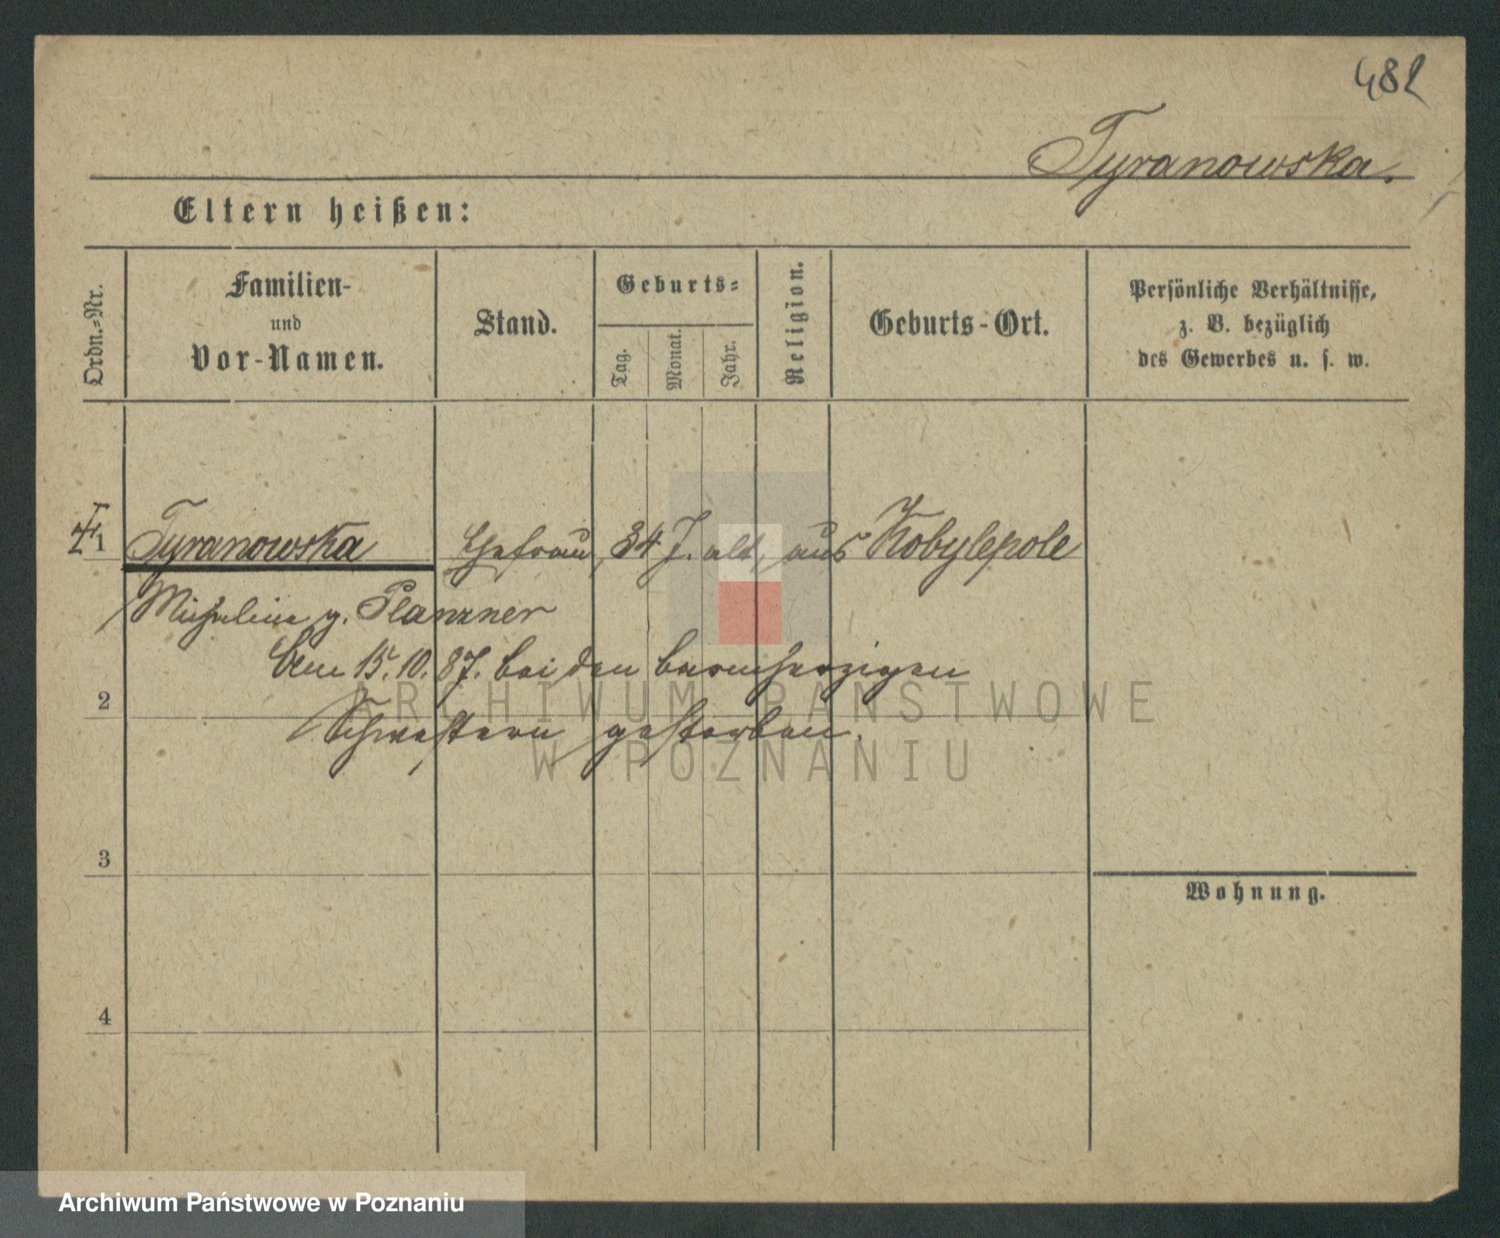 482
Tyranowska.
Eltern heißen:
Ordn.-Nr.
Familien-
und
Vor-Namen.
Stand.
Geburts-
Tag.
Monat.
Jahr.
Religion.
Geburts-Ort.
Persönliche Verhältnisse,
z. B. bezüglich
des Gewerbes u. s. w.
1 Tyranowska Ehefrau, 34 J. alt, aus Kobylepole
Michalina g. Planzner
Am 15.10.87. bei den barmherzigen
2
Schwestern gestorben.
ARCHIWUM PAŃSTWOWE
W POZNANIU
3
Wohnung.
4
Archiwum Państwowe w Poznaniu